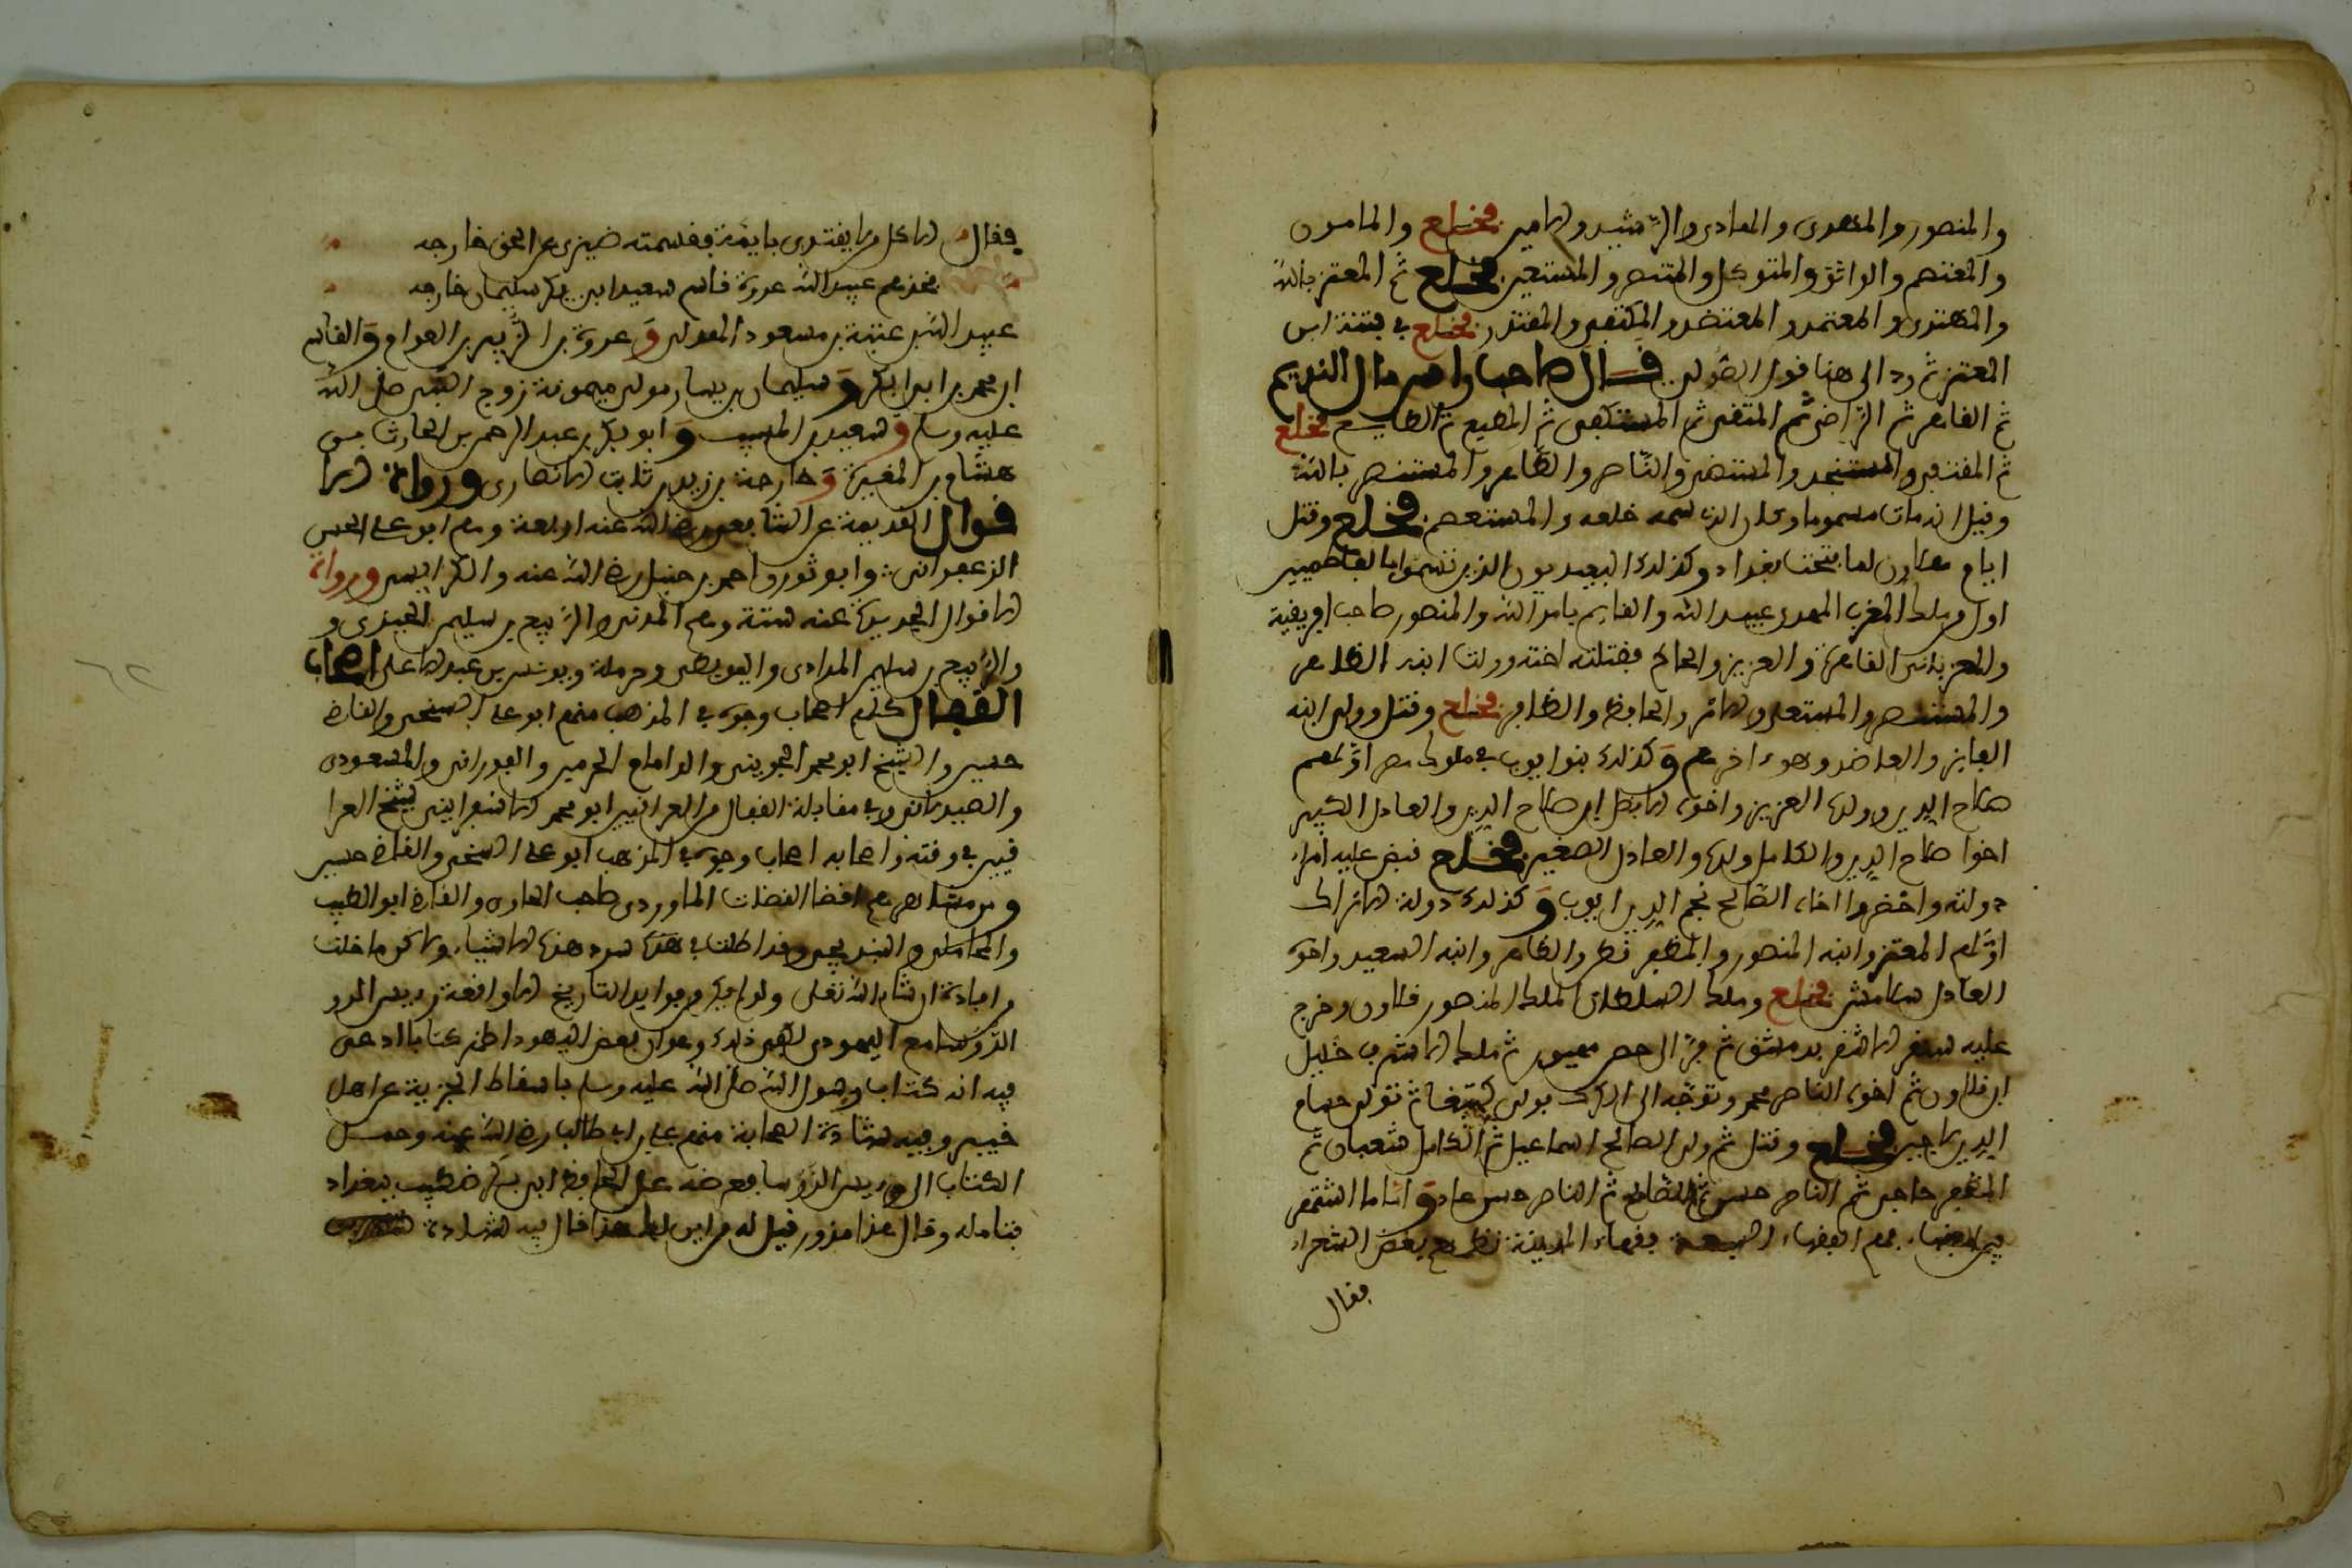 والمنصور والمهدى والهادى والرشيد والامين فخلع والمامون
والمعتصم والواثق والمتوكل والمنتصر والمستعين فخلع ثم المعتز بالله
والمهتدى والمعتمد والمعتضد والمكتفى والمقتدر فخلع فى فتنة ابن
المعتز ثم رد الى هنا قول الصولى قال صاحب راس مال النديم
ثم القاهر ثم الراضى ثم المتقى ثم المستكفى ثم المطيع ثم الطايع فخلع
ثم المقتفى والمستنجد والمستضى والناصر والظاهر والمستنصر بالله
وقيل انه مات مسموما وكان الذى سمه خلعه والمستعصم فخلع وقتل
ايام هلاون لما فتحت بغداد وكذلك العبيديون الذين تسموا بالفاطميين
اول من ملك المغرب المهدى عبيد الله والقايم بامر الله والمنصور صاحب افريقية
والمعز بانى القاهرة والعزيز والحاكم فقتلته اخته وولت ابنه الظاهر
والمستنصر والمستعلى والامر والحافظ والظافر فخلع وقتل وولى ابنه
الفايز والعاضد وهو ءاخرهم وكذلك بنوا ايوب فى ملوك مصر اولهم
صلاح الدين وولده العزيز واخوه الافضل ابن صلاح الدين والعادل الكبير
اخوا صلاح الدين والكامل ولده والعادل الصغير فخلع قبض عليه امراء
دولته واحضروا اخاه الصالح نجم الدين ايوب وكذلك دولة الاتراك
اولهم المعز وابنه المنصور والمظفر قطز والظاهر وابنه السعيد واخوه
العادل سلامش فخلع وملك السلطان الملك المنصور قلاون وخرج
عليه سنقر الاشقر بدمشق ثم فر الى حصن صهيون ثم ملك الاشرف خليل
ابن قلاون ثم اخوه الناصر محمد وتوجه الى الكرك فولى كتبغا ثم تولى حسام
الدين لاجين فخلع وقتل ثم ولى الصالح اسماعيل ثم الكامل شعبان ثم
المظفر حاجى ثم الناصر حسن ثم الصالح ثم الناصر حسن عاد واما ما اشتهر
من الفقهاء فهم الفقهاء السبعة فقهاء المدينة نظمهم بعض الشعراء
فقال
فقال الاكل من لا يقتدى بايمة فقسمته ضيزى عن الحق خارجه
فخذهم عبيد الله عروة قاسم سعيد ابى بكر سليمان خارجه
عبيد الله بن عتبة بن مسعود الهذلى وعروة بن الزبير بن العوام والقاسم
ابن محمد بن ابى بكر وسليمان بن يسار مولى ميمونة زوج النبى صلى الله
عليه وسلم وسعيد بن المسيب وابو بكر بن عبد الرحمن بن الحارث بن
هشام بن المغيرة وخارجة بن زيد بن ثابت الانصارى ورواة الا
قوال القديمة عن الشافعى رضى الله عنه اربعة وهم ابو على الحسن
الزعفرانى وابو ثور واحمد بن حنبل رضى الله عنه والكرابيسى ورواة
الاقوال الجديدة عنه ستة وهم المزنى والربيع بن سليمن الجيزى و
والربيع بن سليمن المرادى والبويطى وحرملة ويونس بن عبد الاعلى اصحاب
القفال كلهم اصحاب وجوه فى المذهب منهم ابو على السنجى والقاضى
حسين والشيخ ابو محمد الجوينى والد امام الحرمين والفورانى والمسعودى
والصيدلانى وفى مقابلة القفال من العراقيين ابو محمد الاسفراينى شيخ العرا
قيين فى وقته واصحابه اصحاب وجوه فى المذهب ابو على السنجى والقاضى حسين
ومن مشاهرهم اقضا القضات الماوردى صاحب الحاوى والقاضى ابو الطيب
والمحاملى والبندنيجى وقد اطلت فى هذه سرد هذه الاشياء ولاكن ما خلت
من افادة ان شاء الله تعلى ولو لم يكن من فوايد التاريخ الا واقعة رييس الرو
الرؤسا مع اليهودى لكفى ذلك وهو ان بعض اليهود اظهر كتابا ادعى
فيه انه كتاب رسول الله صلى الله عليه وسلم باسقاط الجزية عن اهل
خيبر وفيه شهادة الصحابة منهم على بن ابى طالب رضى الله عنه وحمل
الكتاب الى رييس الرؤسا فعرضه على الحافظ ابى بكر خطيب بغداد
فتامله وقال هذا مزور فقيل له من اين لك هذا قال فيه شهادة